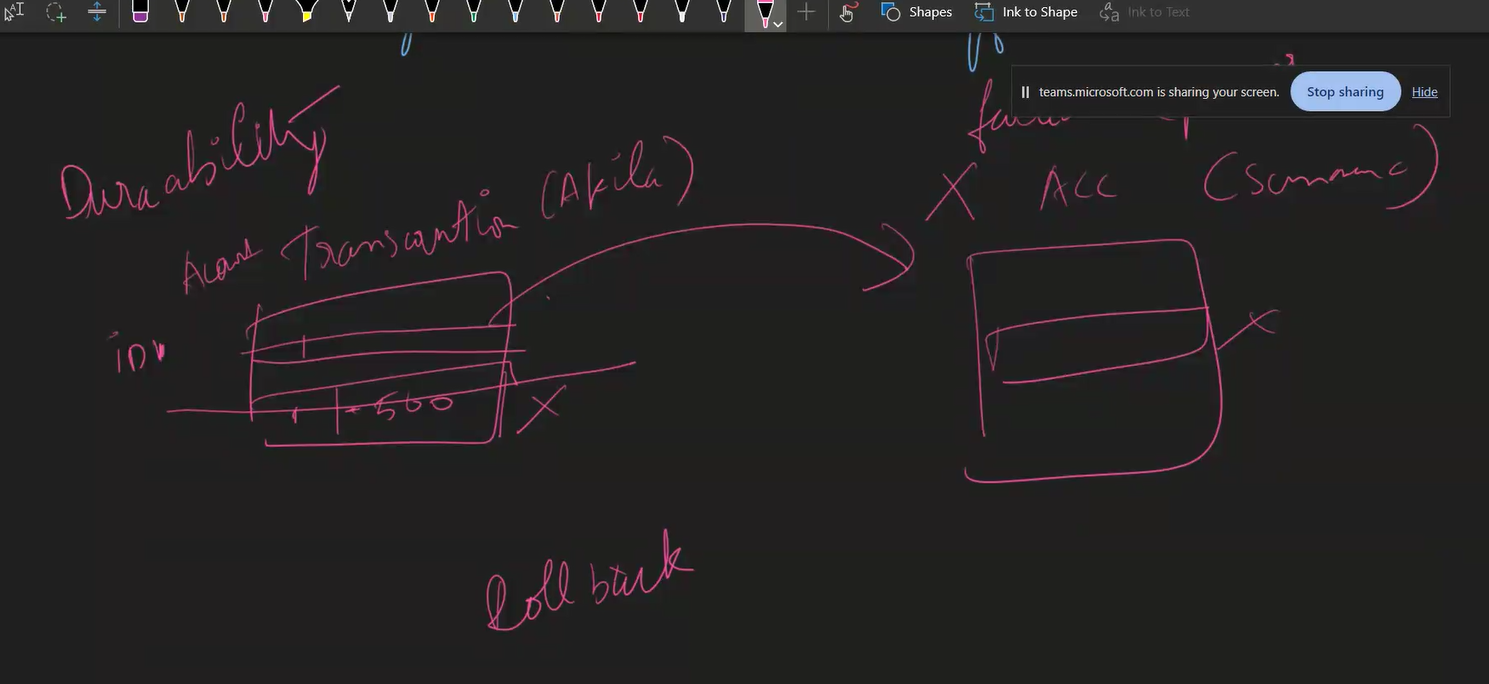 Shapes
Ink to Shape
Ink to Text
teams.microsoft.com is sharing your screen.
Stop sharing
Hide
Durability
Transcantion (Akila)
X ACC
- 500 X
X
Roll back